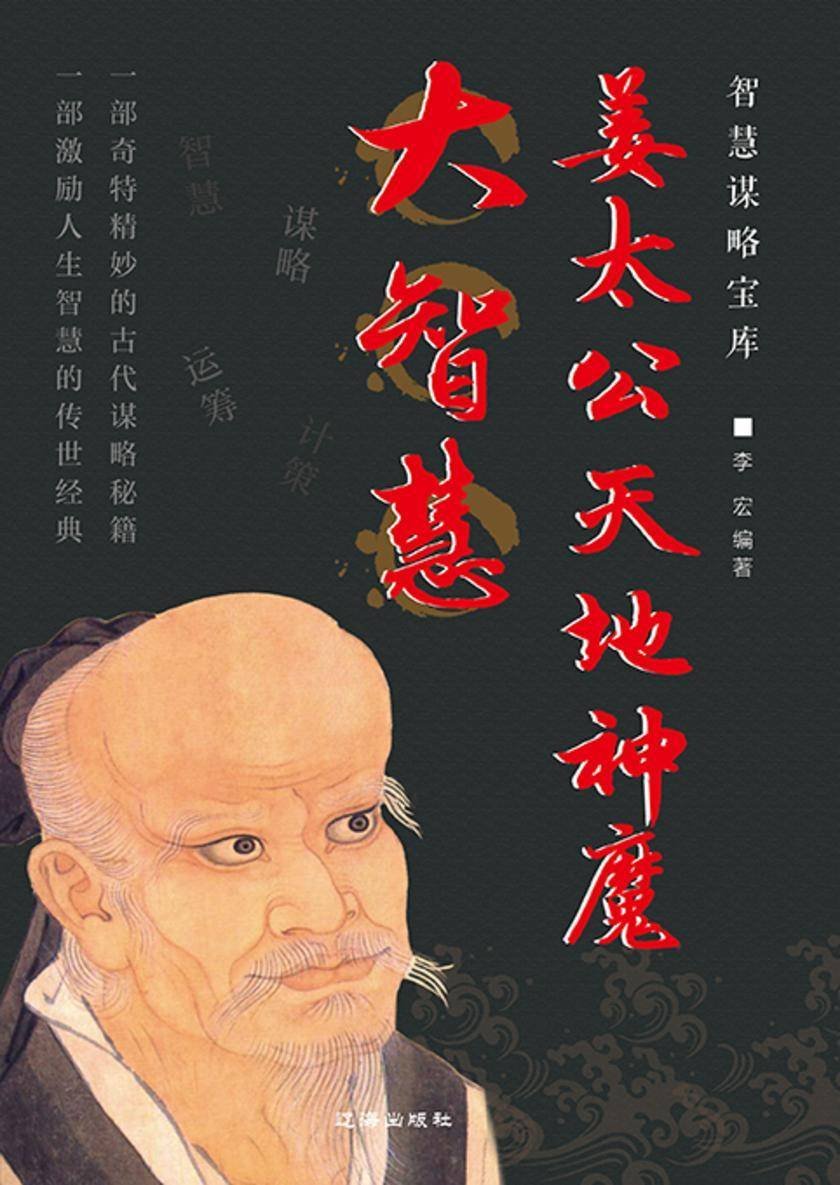 智慧谋略宝库
■李宏编著
姜太公天地神魔
大智慧
谋略
计策
智慧
运筹
一部奇特精妙的古代谋略秘籍
一部激励人生智慧的传世经典
辽海出版社